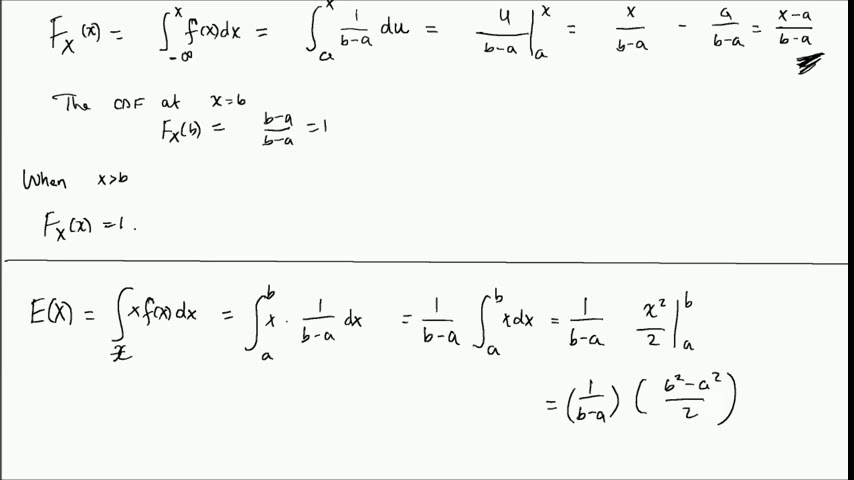 F_X(x) = ∫_{-∞}^{x} f(x)dx = ∫_{a}^{x} 1/(b-a) du = u/(b-a) |_{a}^{x} = x/(b-a) - a/(b-a) = (x-a)/(b-a)
The CDF at x=b
F_X(b) = (b-a)/(b-a) = 1
When x>b
F_X(x) = 1.
E(X) = ∫_{x} x f(x) dx = ∫_{a}^{b} x · 1/(b-a) dx = 1/(b-a) ∫_{a}^{b} x dx = 1/(b-a) x²/2 |_{a}^{b}
= (1/(b-a)) ((b²-a²)/2)